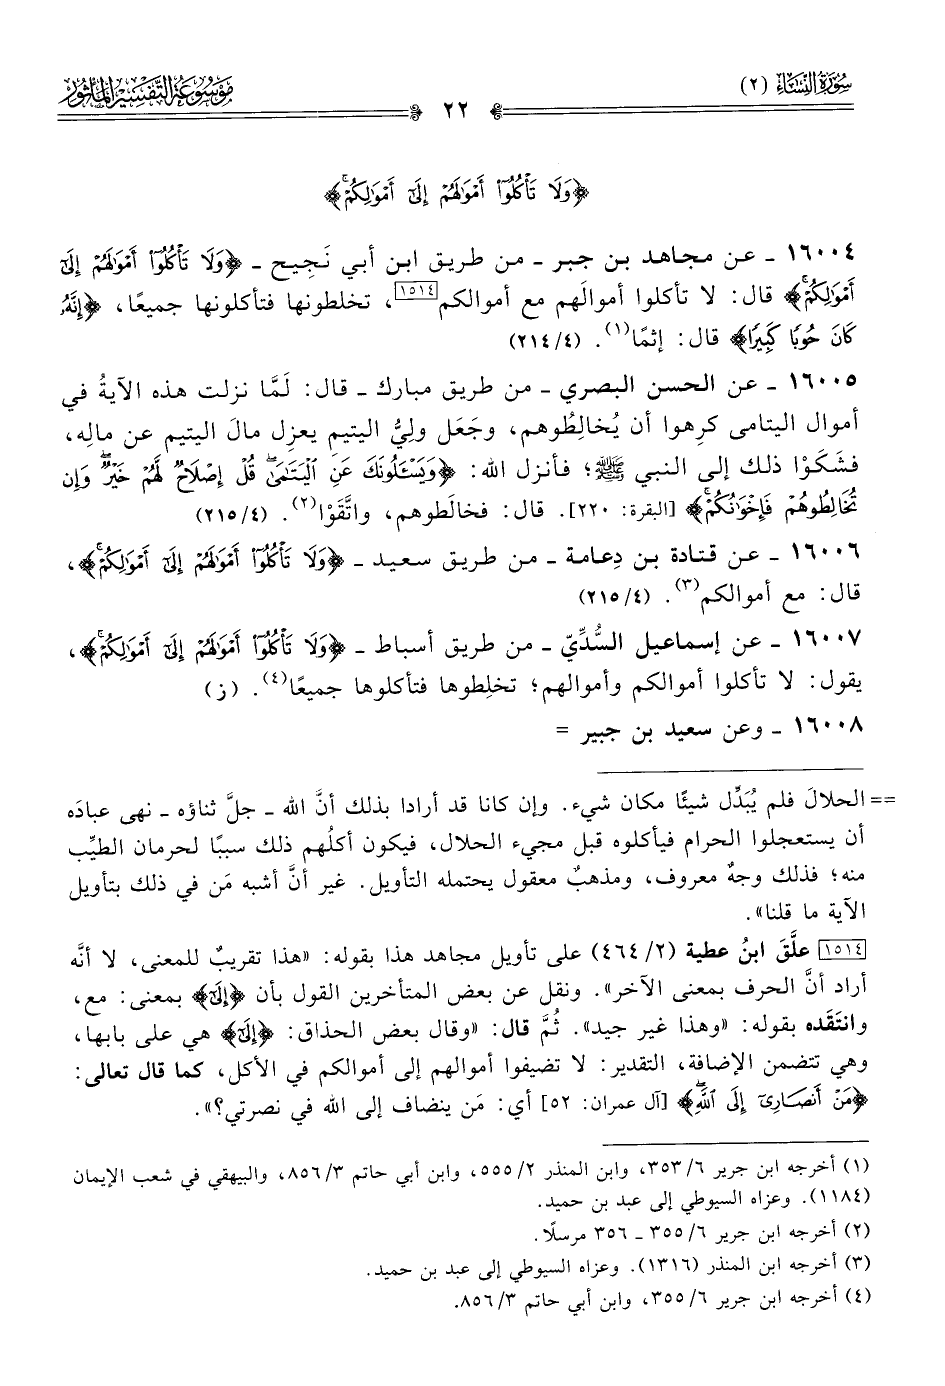 سُورَةُ النِّسَاءِ (٢)
٢٢
مَوْسُوعَة التَّفْسِير المَأْثُور
﴿وَلَا تَأْكُلُوٓا۟ أَمْوَٰلَهُمْ إِلَىٰٓ أَمْوَٰلِكُمْ ۚ﴾
١٦٠٠٤ ـ عن مجاهد بن جبر ـ من طريق ابن أبي نَجِيح ـ ﴿وَلَا تَأْكُلُوٓا۟ أَمْوَٰلَهُمْ إِلَىٰٓ
أَمْوَٰلِكُمْ ۚ﴾ قال: لا تأكلوا أموالَهم مع أموالكم[١٥١٤]، تخلطونها فتأكلونها جميعًا، ﴿إِنَّهُۥ
كَانَ حُوبًا كَبِيرًا﴾ قال: إثمًا(١). (٢١٤/٤)
١٦٠٠٥ ـ عن الحسن البصري ـ من طريق مبارك ـ قال: لَمَّا نزلت هذه الآيةُ في
أموال اليتامى كرِهوا أن يُخالِطُوهم، وجَعَل ولِيُّ اليتيم يعزِل مالَ اليتيم عن مالِه،
فشَكَوْا ذلك إلى النبي ﷺ؛ فأنزل الله: ﴿وَيَسْـَٔلُونَكَ عَنِ ٱلْيَتَٰمَىٰ ۖ قُلْ إِصْلَاحٌ لَّهُمْ خَيْرٌ ۖ وَإِن
تُخَالِطُوهُمْ فَإِخْوَٰنُكُمْ ۚ﴾ [البقرة: ٢٢٠]. قال: فخالَطوهم، واتَّقَوْا(٢). (٢١٥/٤)
١٦٠٠٦ ـ عن قتادة بن دِعامة ـ من طريق سعيد ـ ﴿وَلَا تَأْكُلُوٓا۟ أَمْوَٰلَهُمْ إِلَىٰٓ أَمْوَٰلِكُمْ ۚ﴾،
قال: مع أموالكم(٣). (٢١٥/٤)
١٦٠٠٧ ـ عن إسماعيل السُّدِّيّ ـ من طريق أسباط ـ ﴿وَلَا تَأْكُلُوٓا۟ أَمْوَٰلَهُمْ إِلَىٰٓ أَمْوَٰلِكُمْ ۚ﴾،
يقول: لا تأكلوا أموالكم وأموالهم؛ تخلِطوها فتأكلوها جميعًا(٤). (ز)
١٦٠٠٨ ـ وعن سعيد بن جبير =
== الحلالَ فلم يُبَدِّل شيئًا مكان شيء. وإن كانا قد أرادا بذلك أنَّ الله ـ جلَّ ثناؤه ـ نهى عبادَه
أن يستعجلوا الحرام فيأكلوه قبل مجيء الحلال، فيكون أكلُهم ذلك سببًا لحرمان الطيِّب
منه؛ فذلك وجهٌ معروف، ومذهبٌ معقول يحتمله التأويل. غير أنَّ أشبه مَن في ذلك بتأويل
الآية ما قلنا».
[١٥١٤] علَّقَ ابنُ عطية (٤٦٤/٢) على تأويل مجاهد هذا بقوله: «هذا تقريبٌ للمعنى، لا أنَّه
أراد أنَّ الحرف بمعنى الآخر». ونقل عن بعض المتأخرين القول بأن ﴿إِلَىٰٓ﴾ بمعنى: مع،
وانتَقَده بقوله: «وهذا غير جيد». ثُمَّ قال: «وقال بعض الحذاق: ﴿إِلَىٰٓ﴾ هي على بابها،
وهي تتضمن الإضافة، التقدير: لا تضيفوا أموالهم إلى أموالكم في الأكل، كما قال تعالى:
﴿مَنْ أَنصَارِىٓ إِلَى ٱللَّهِ ۖ﴾ [آل عمران: ٥٢] أي: مَن ينضاف إلى الله في نصرتي؟».
(١) أخرجه ابن جرير ٣٥٣/٦، وابن المنذر ٥٥٥/٢، وابن أبي حاتم ٨٥٦/٣، والبيهقي في شعب الإيمان
(١١٨٤). وعزاه السيوطي إلى عبد بن حميد.
(٢) أخرجه ابن جرير ٣٥٥/٦ ـ ٣٥٦ مرسلًا.
(٣) أخرجه ابن المنذر (١٣١٦). وعزاه السيوطي إلى عبد بن حميد.
(٤) أخرجه ابن جرير ٣٥٥/٦، وابن أبي حاتم ٨٥٦/٣.